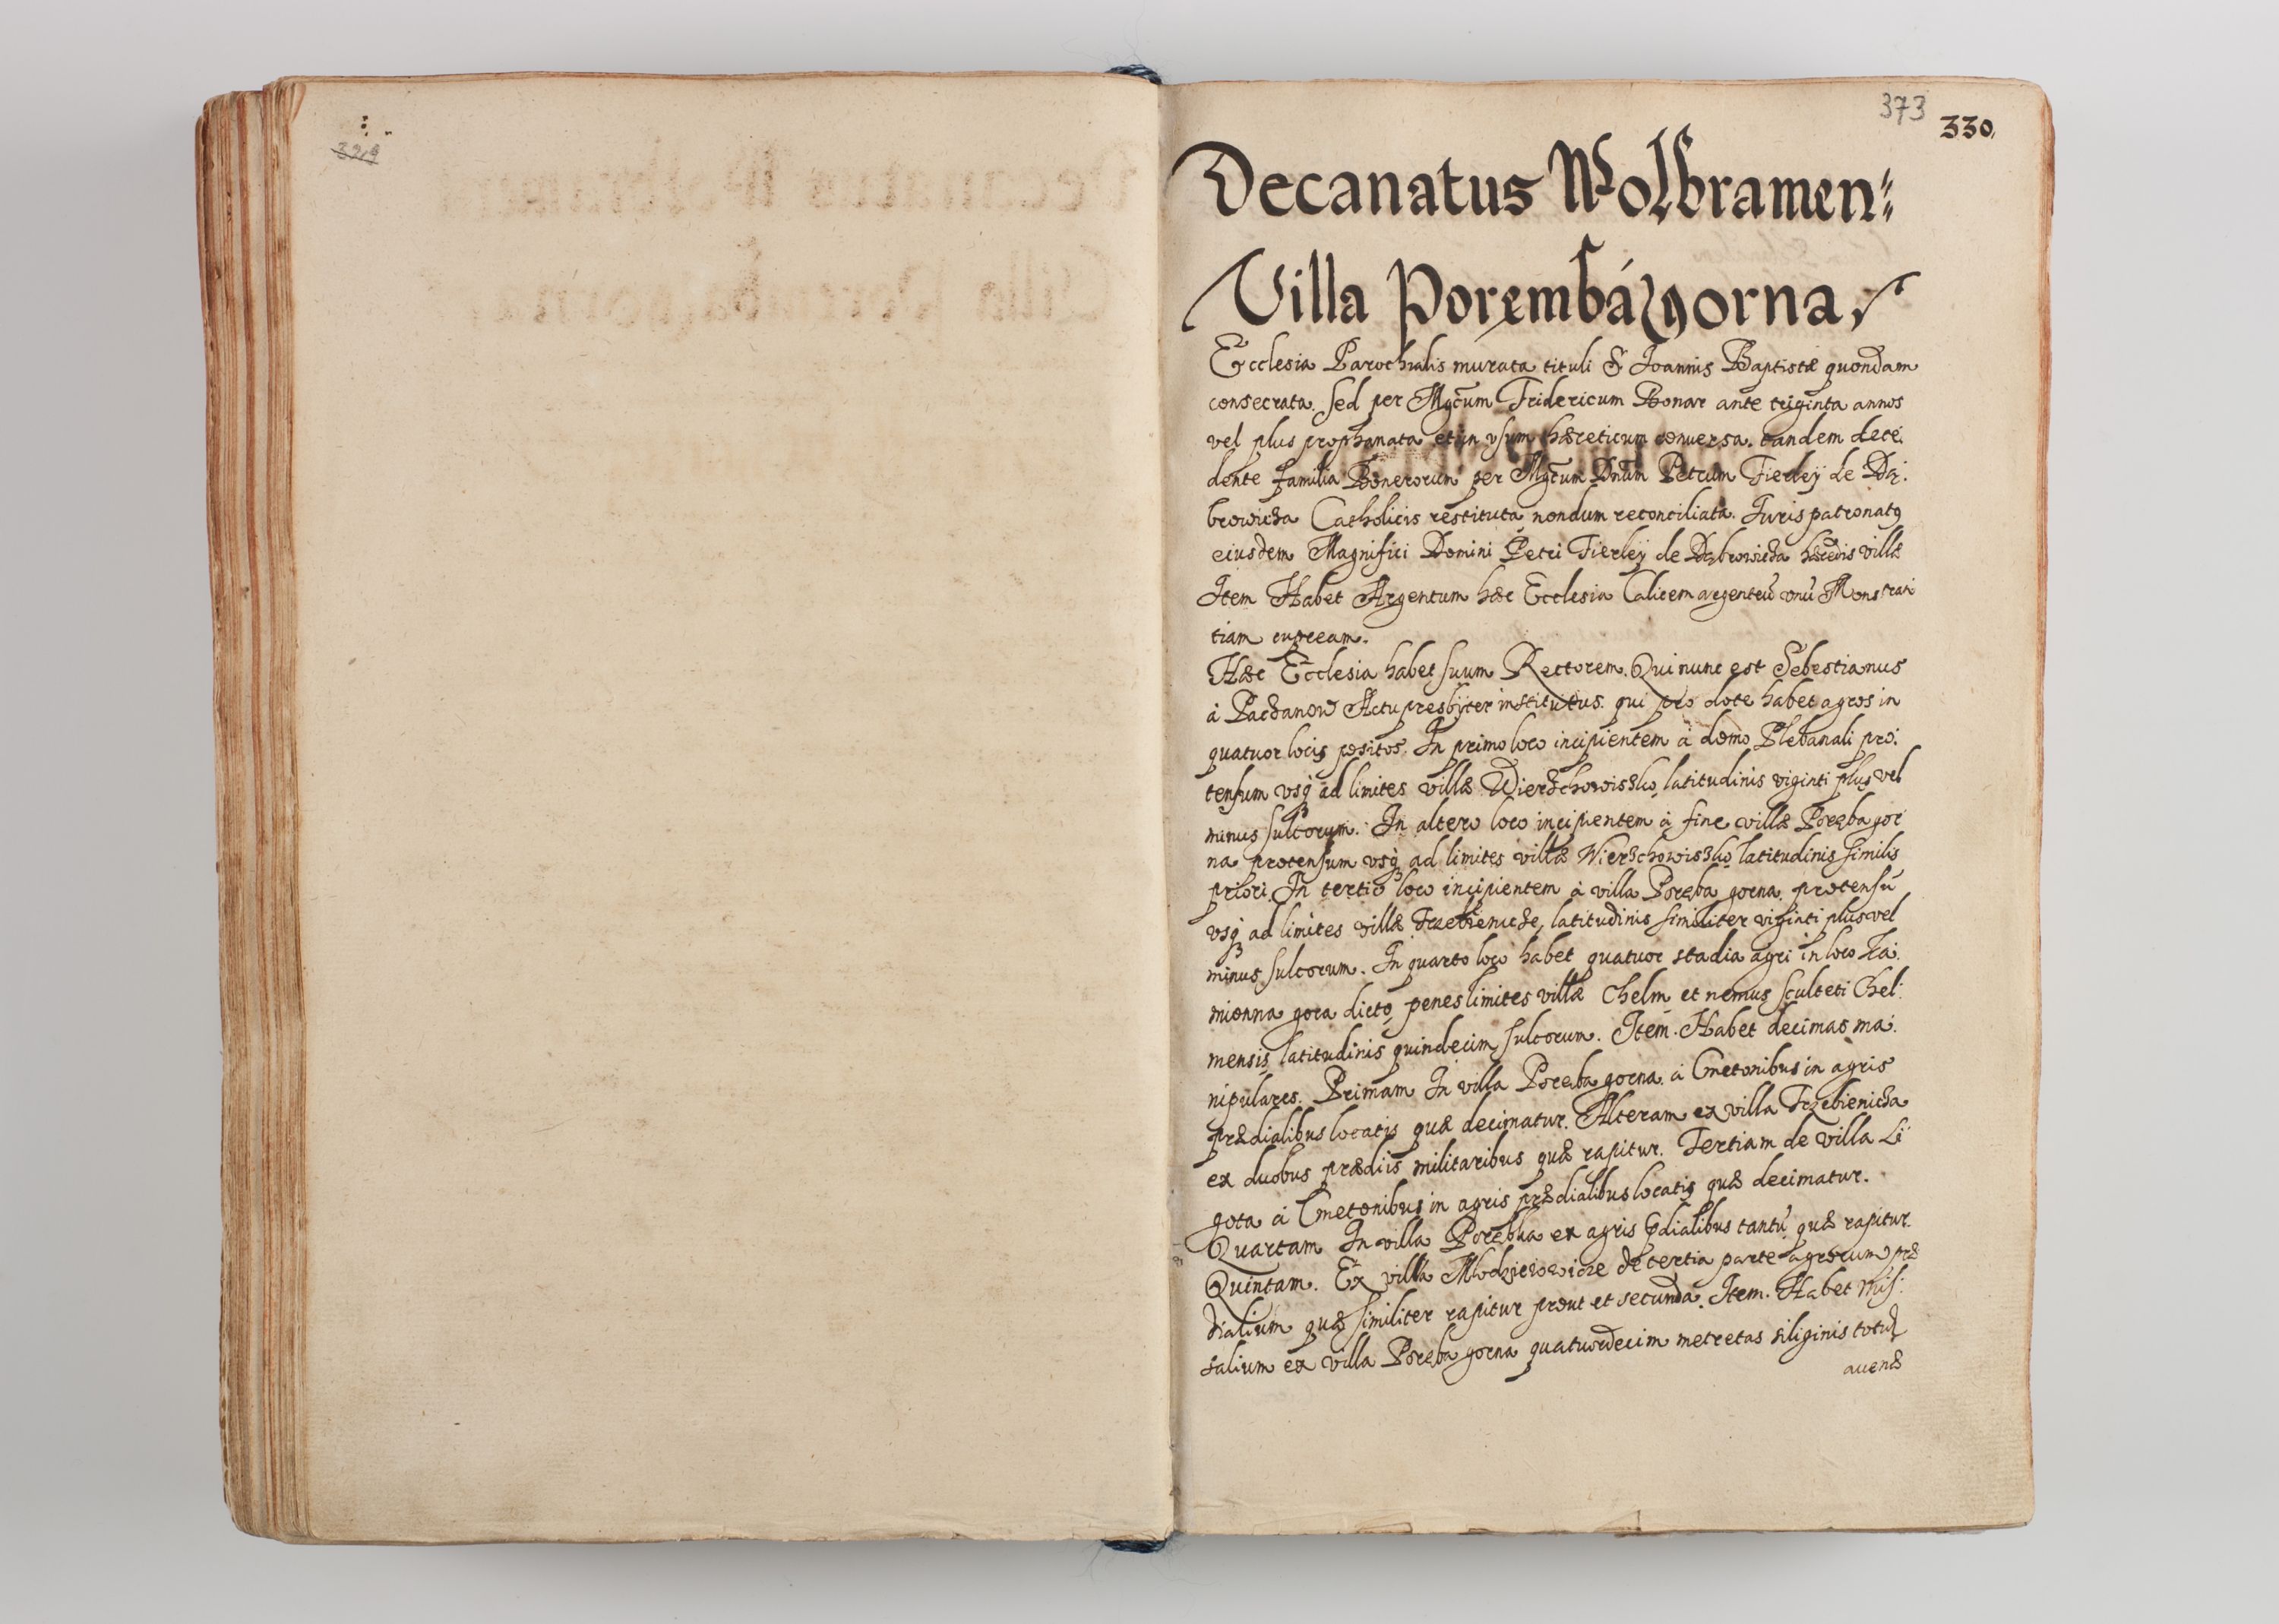 329
373
330.
Decanatus Wolbramen:
Villa Porembá gorna.
Ecclesia Parochialis murata tituli S. Joannis Baptistæ quondam
consecrata. Sed per Mgcum Fridericum Bonar ante triginta annos
vel plus prophanata et in vsum hæreticum conuersa. tandem dece:
dente familia Bonerorum per Mgcum Dnum Petrum Fierley de Dą:
browicza Catholicis restituta nondum reconciliata. Juris patronatus
eiusdem Magnifici Domini Petri Fierley de Dąbrowicza hæredis villæ
Item Habet Argentum hæc Ecclesia Calicem argenteũ vnũ Monstran
tiam cupream.
Hæc Ecclesia habet suum Rectorem. Qui nunc est Sebestianus
à Paczanow Actu presbyter institutus. qui pro dote habet agros in
quatuor locis positos. In primo loco incipientem à domo Plebanali pro:
tensum vsq ad limites villæ Wierzchowisko, latitudinis viginti plus vel
minus sulcorum. In altero loco incipientem à fine villæ Poręba gor
na protensum vsq ad limites villæ Wierzchowisko latitudinis similis
priori. In tertio loco incipientem à villa Poręba gorna protensũ
vsq ad limites villæ Trzebienicze, latitudinis similiter viginti plus vel
minus sulcorum. In quarto loco habet quatuor stadia agri in loco Ka:
mienna gora dicto, penes limites villæ Chelm et nemus sculteti Chel:
mensis latitudinis quindecim sulcorum. Item. Habet decimas ma:
nipulares. Primam In villa Poręba gorna à Cmetonibus in agris
prædialibus locatis quæ decimatur. Alteram ex villa Trzebienicza
ex duobus prædiis militaribus quæ rapitur. Tertiam de villa Li
gota à Cmetonibus in agris prædialibus locatis quæ decimatur.
Quartam In villa Porębka ex agris pdialibus tantũ quæ rapitur.
Quintam. Ex villa Mlodzieiowicze de tertia parte agrorum præ
dialium quæ similiter rapitur prout et secunda. Item. Habet Mis:
salium ex villa Poręba gorna quatuordecim metretas siliginis totid
auenæ